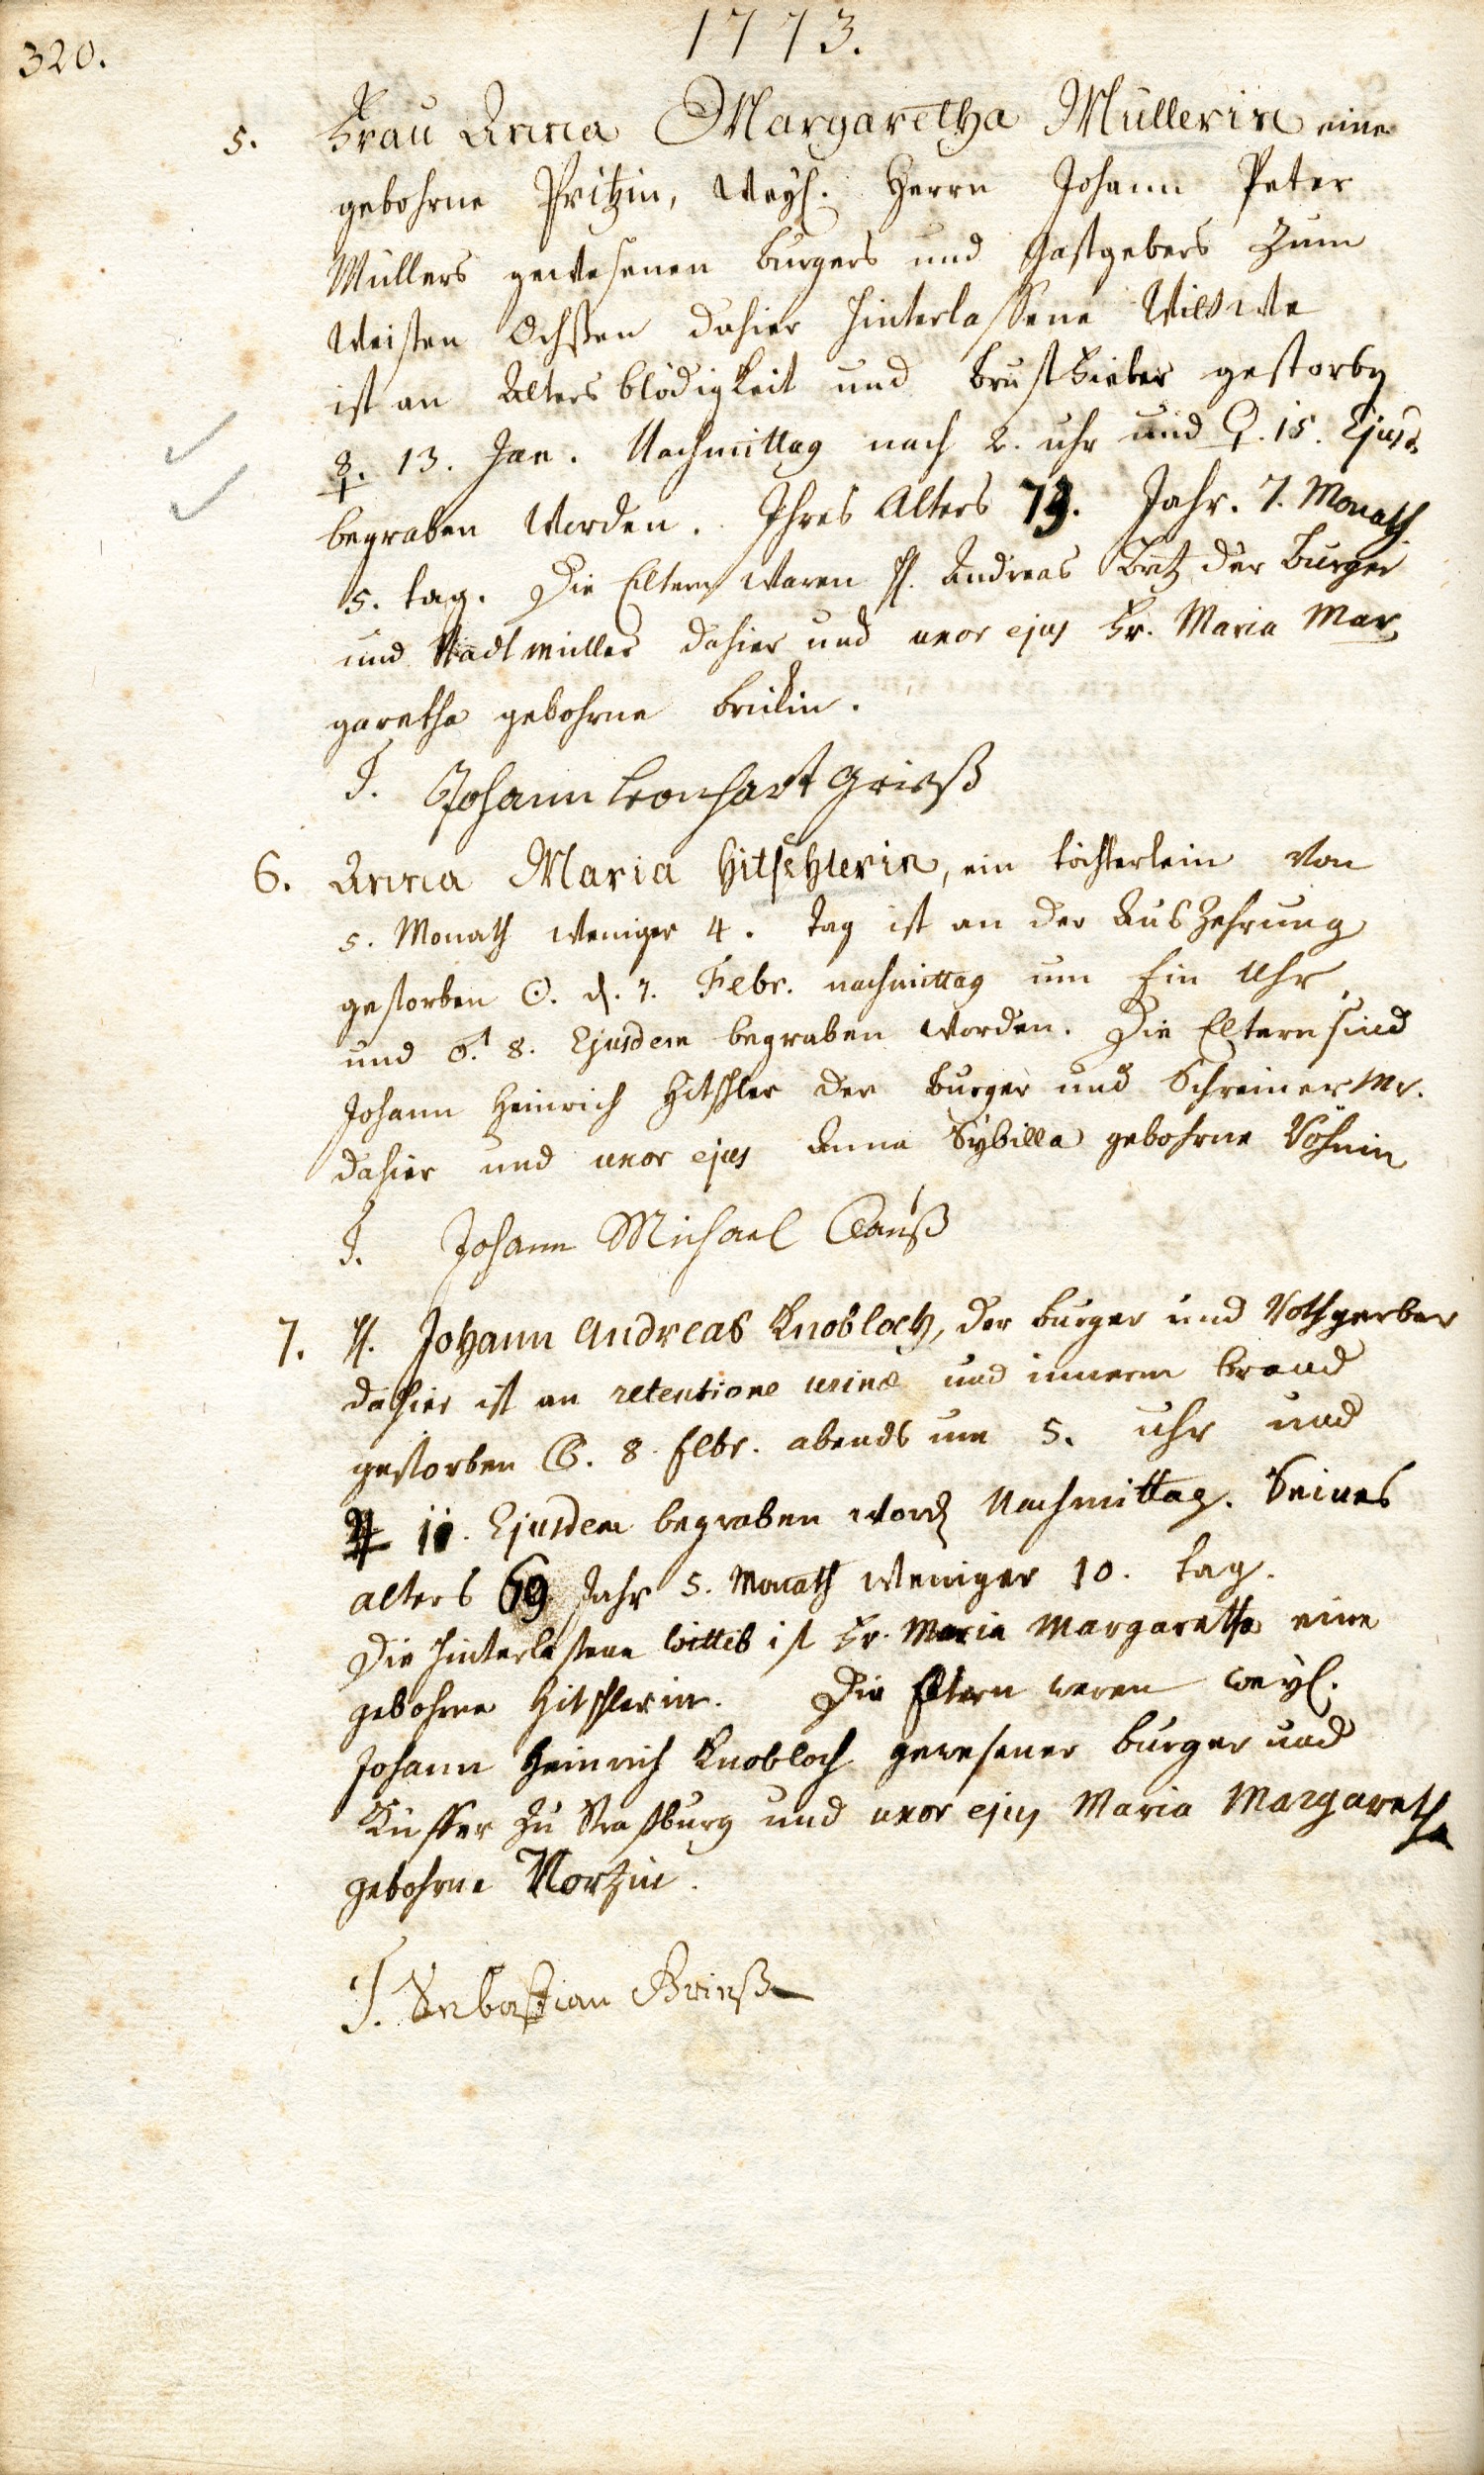 320.
1773.
5. Frau Anna Margaretha Müllerin eine
gebohrne Pritzin, weyl. Herrn Johann Peter
Müllers gewesenen burgers und Gastgebers zum
Weisten Ochßen dahier hinterlassene Wittwe
ist an Alters blödigkeit und brust Fieber gestorben
☿. 13. Jan. Nachmittag nach 2. uhr und ♀. 15. Ejusd.
begraben worden. Ihres Alters 79. Jahr. 7. Monath
5. tag. Die Eltern waren H. Andreas Britz der burger
und Stadtmüller dahier und uxor ejus Fr. Maria Mar
garetha gebohrne
T. Johann Leonhart Grieß
6. Anna Maria Hitschlerin, ein töchterlein von
5. Monath weniger 4. Tag ist an der Auszehrung
gestorben ☉. d. 7. Febr. nachmittag um Ein Uhr
und 8. Ejusdem begraben worden. Die Eltern sind
Johann Heinrich Hitschler der burger und Schreiner Mr.
dahier und uxor ejus Anna Sybilla gebohrne Vöhnin
T. Johann Michael Clauß
7. H. Johann Andreas Knobloch, der burger und Rothgerber
dahier ist an retentione urinæ und innerm brand
gestorben 8 Febr. abends um 5. uhr und
♃ 11. Ejusdem begraben word Nachmittag. Seines
alters 69 Jahr 5. Monath weniger 10. tag.
Die hinterlassene Wittib ist Fr. Maria Margaretha eine
gebohrne Hitschlerin. Die Eltern waren weyl.
Johann Heinrich Knobloch gewesener burger und
Küffer zu Straßburg und uxor ejus Maria Margaretha
gebohrne Nortzin.
T. Sebastian Brieß